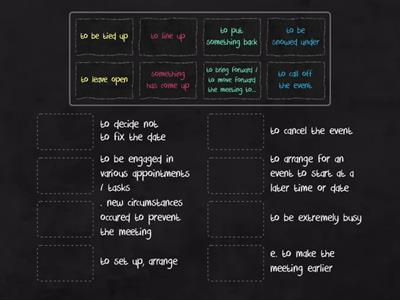 to be tied up
to line up
to put
something back
to be
snowed under
to leave open
something
has come up
to bring forward /
to move forward
the meeting to...
to call off
the event
to decide not
to fix the date
to cancel the event
to be engaged in
various appointments
/ tasks
to arrange for an
event to start at a
later time or date
. new circumstances
occured to prevent
the meeting
to be extremely busy
to set up, arrange
e. to make the
meeting earlier